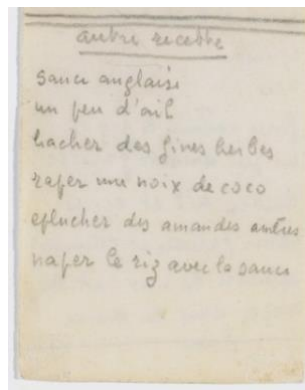 autre recette
sauce anglaise
un peu d'ail
hacher des fines herbes
raper une noix de coco
eplucher des amandes amères
naper le riz avec la sauce